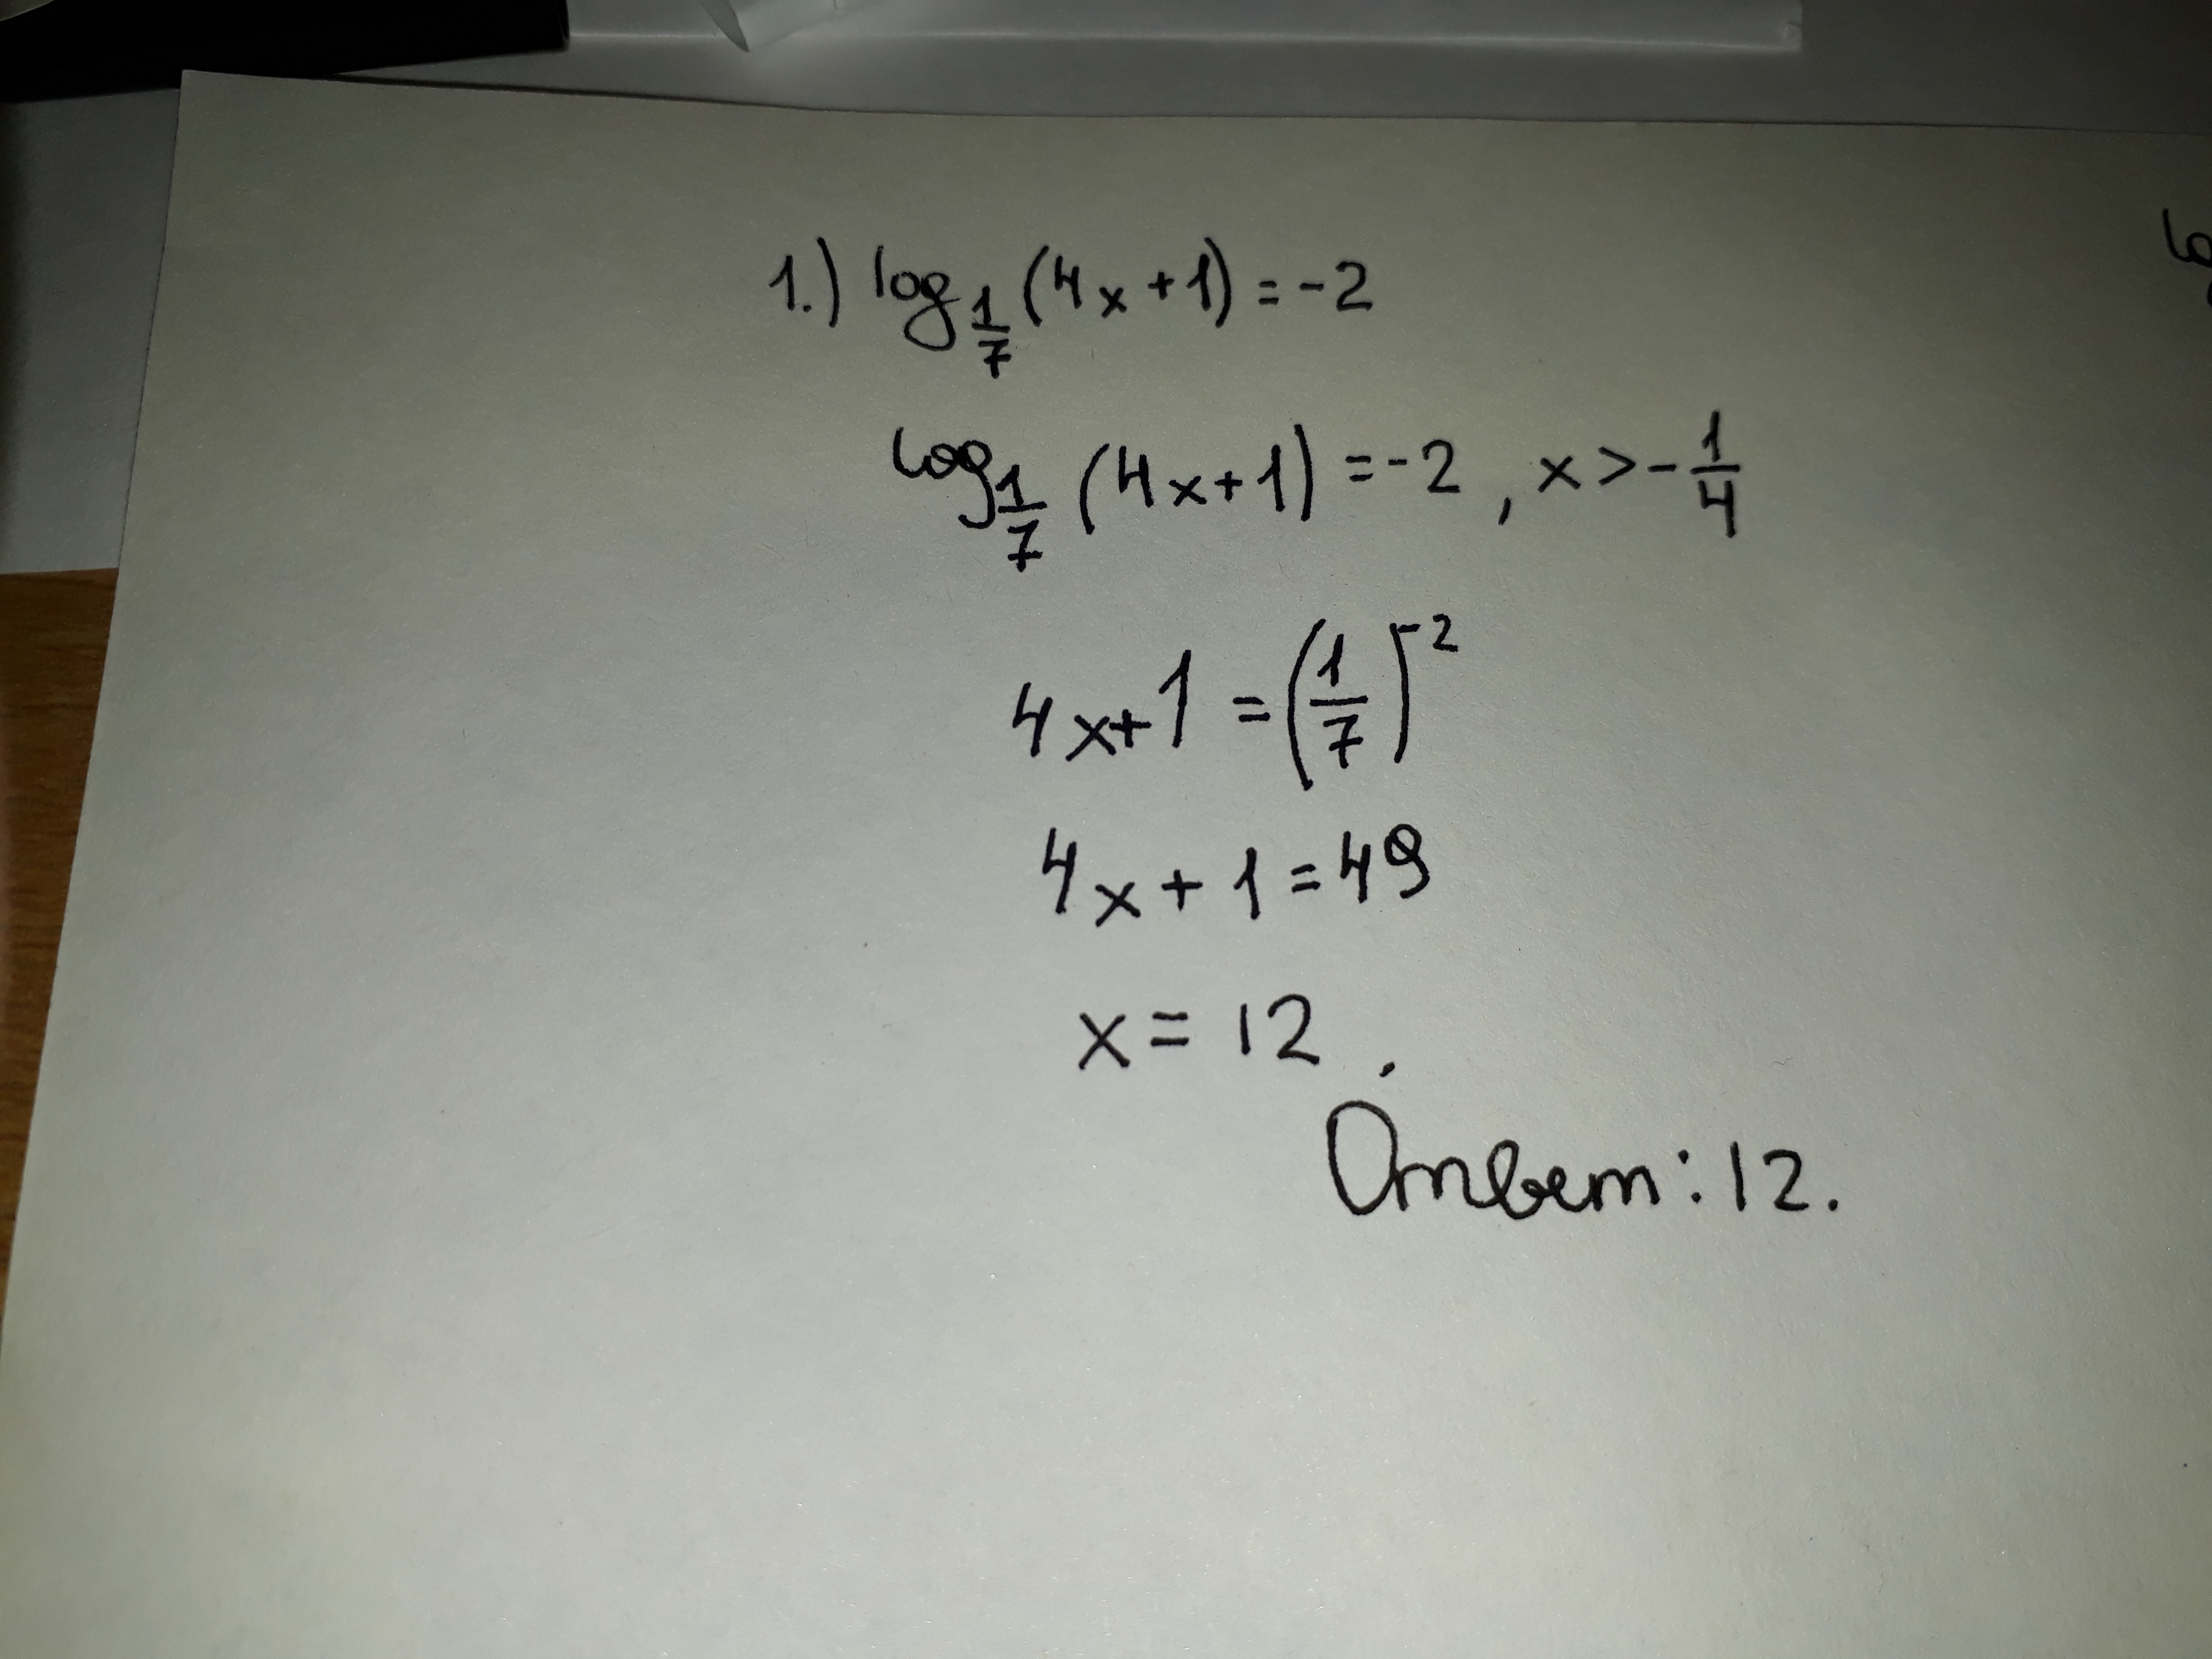 1.) log_{1/7} (4x+1) = -2
log_{1/7} (4x+1) = -2 , x > -1/4
4x+1 = (1/7)^{-2}
4x + 1 = 49
x = 12 .
Ответ: 12.